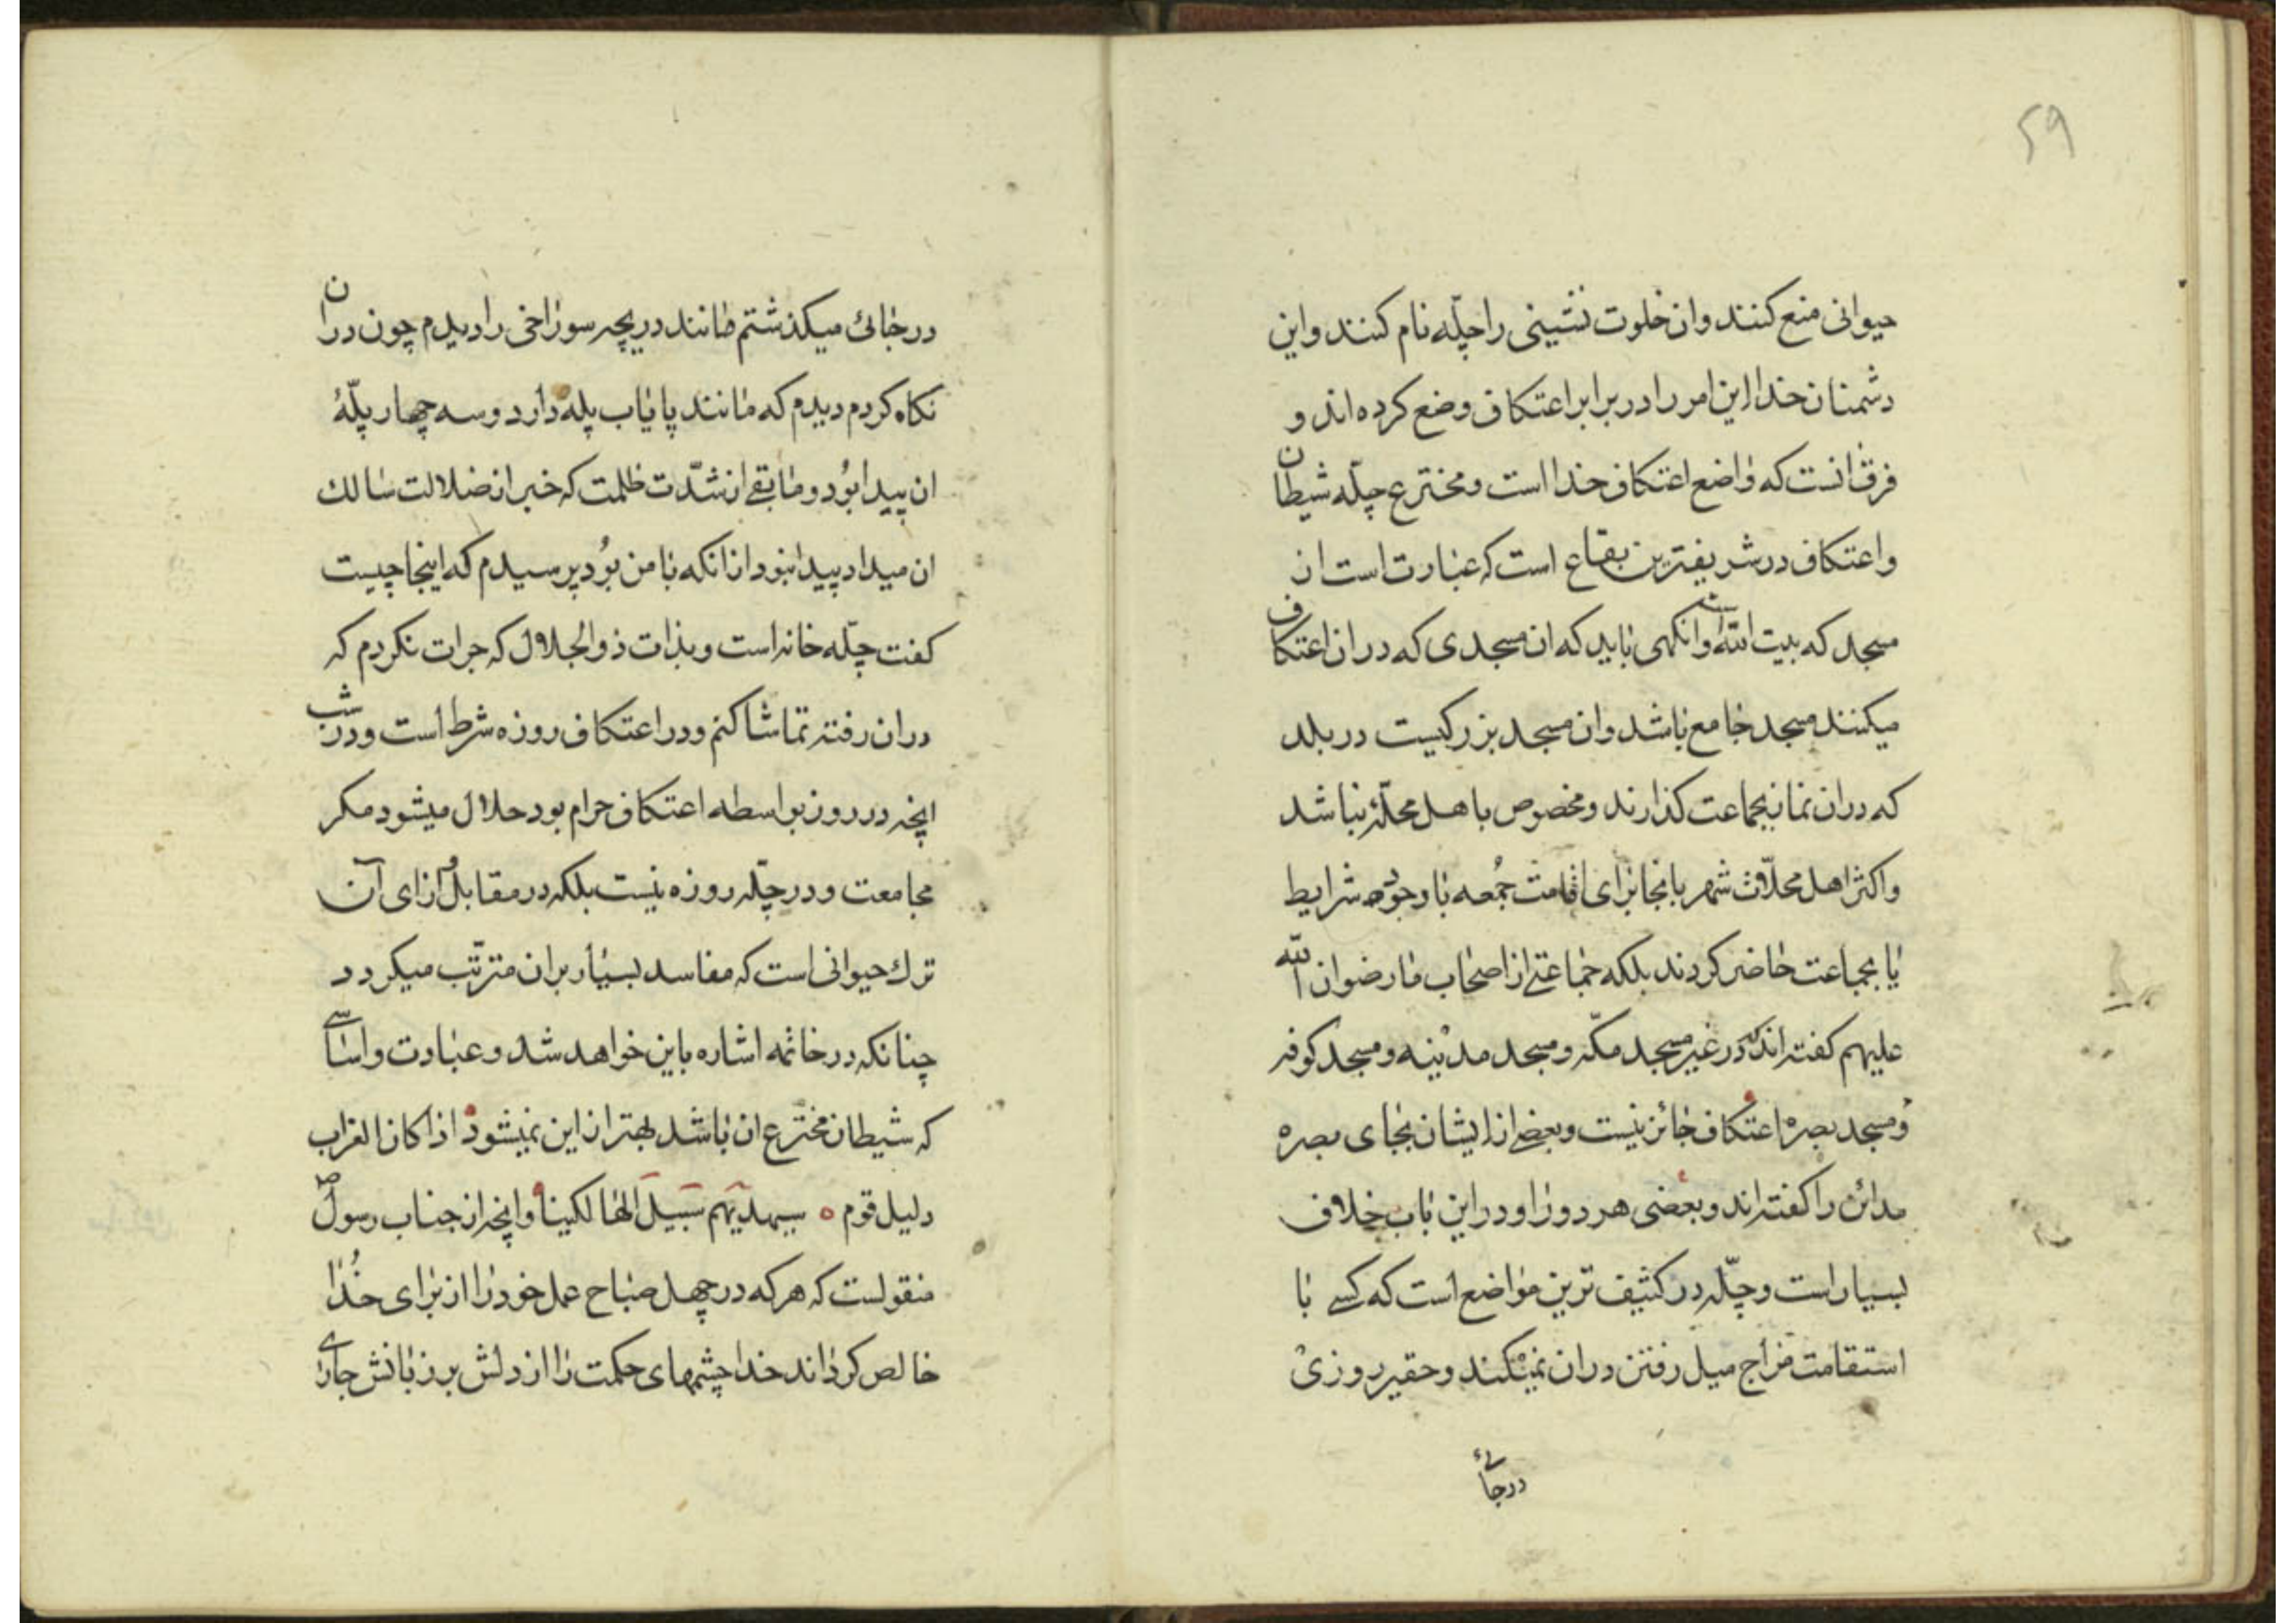 ۵۹
حیوانی منع کنند وان خلوت نشینی را چلّه نام کنند واین
دشمنان خدا این امر را در برابر اعتکاف وضع کرده اند و
فرق انست که واضع اعتکاف خدا است ومخترع چلّه شیطان
واعتکاف در شریفترین بقاع است که عبارت است از
مسجد که بیت الله است وانگهی باید که ان مسجدی که در ان اعتکاف
میکنند مسجد جامع باشد وان مسجد بزرکیست در بلد
که در ان نماز بجماعت کذارند ومخصوص باهل محلّه نباشد
واکثر اهل محلّات شهر بانجا برای اقامت جُمعه با وجود شرایط
یا بجماعت حاضر کردند بلکه جماعتے از اصحاب ما رضوان الله
علیهم کفته اند که در غیر مسجد مکّه ومسجد مدینه ومسجد کوفه
ومسجد بصره اعتکاف جائز نیست وبعضے از ایشان بجای بصره
مدائن را کفته اند وبعضی هر دو را ودر این باب خلاف
بسیار است وچلّه در کثیف ترین مواضع است که کسے با
استقامت مزاج میل رفتن در ان نمیکند وحقیر روزی
در جائ
در جائ میکذشتم مانند دریچه سوراخی را دیدم چون در ان
نکاه کردم دیدم که مانند پایاب پله دارد وسه چهار پلّهٔ
ان پیدا بُود وما بقے از شدّت ظلمت که خبر از ضلالت سالك
ان میداد پیدا نبود از انکه با من بُود پرسیدم که اینجا چیست
کفت چلّه خانه است وبذات ذو الجلال که جرات نکردم که
در ان رفته تماشا کنم ودر اعتکاف روزه شرط است ودر شب
انچه در روز بواسطه اعتکاف حرام بود حلال میشود مکر
مجامعت ودر چلّه روزه نیست بلکه در مقابل وازای آن
ترك حیوانی است که مفاسد بسیار بران مترتّب میکردد
چنانکه در خاتمه اشاره باین خواهد شد وعبادت واساسے
که شیطان مخترع ان باشد بهتر از این نمیشود اذا کان الغراب
دلیل قوم ه سیهدیهم سَبیلَ الهالکینا وانچه از جناب رسول ص
منقولست که هر که در چهل صباح عمل خود را از برای خُدا
خالص کرداند خدا چشمهای حکمت را از دلش بر زبانش جاری